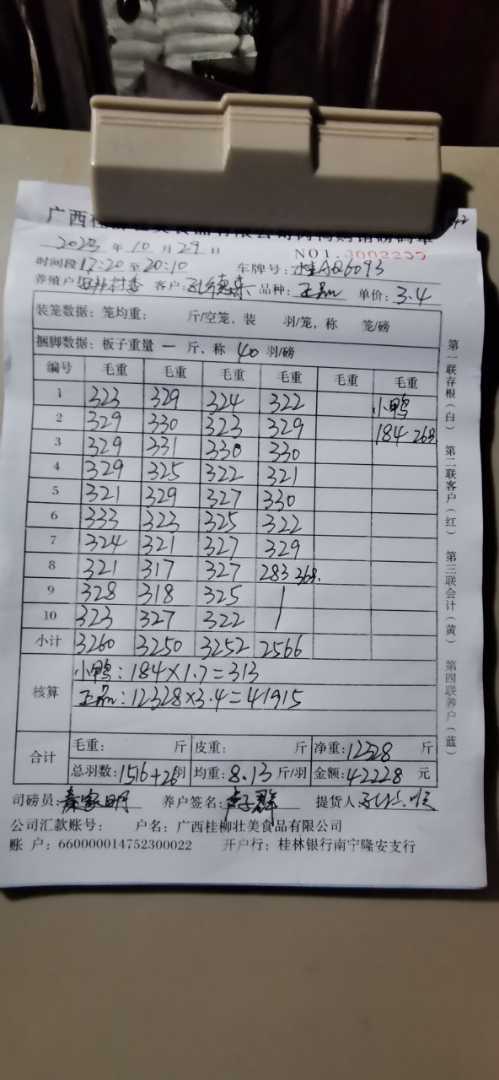 广西桂
2023 年 10 月 29 日
NO1:
时间段 17:20 至 20:10 车牌号:
养殖户: 客户: 品种: 正品 单价: 3.4
装笼数据: 笼均重: 斤/空笼, 装 羽/笼, 称 笼/磅
捆脚数据: 板子重量 一 斤, 称 40 羽/磅
编号 毛重 毛重 毛重 毛重 毛重 毛重
1 323 329 324 322 小鸭
2 329 330 323 329 184 26羽
3 329 331 330 330
4 329 325 322 321
5 321 329 327 330
6 333 323 325 322
7 324 321 327 329
8 321 317 327 283 36羽.
9 328 318 325 /
10 323 327 322 /
小计 3260 3250 3252 2566
核算 小鸭: 184×1.7=313
正品: 12328×3.4=41915
合计 毛重: 斤 皮重: 斤 净重: 斤
总羽数: 1516+26羽 均重: 8.13 斤/羽 金额: 42228 元
司磅员: 养户签名: 提货人
公司汇款账号: 户名: 广西桂柳壮美食品有限公司
账 户: 660000014752300022 开户行: 桂林银行南宁隆安支行
第一联存根(白) 第二联客户(红) 第三联会计(黄) 第四联养户(蓝)